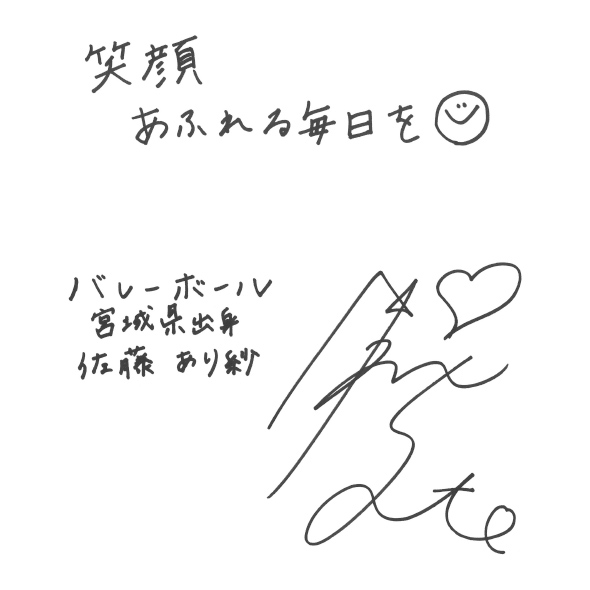 笑顔
あふれる毎日を
バレーボール
宮城県出身
佐藤 あり紗